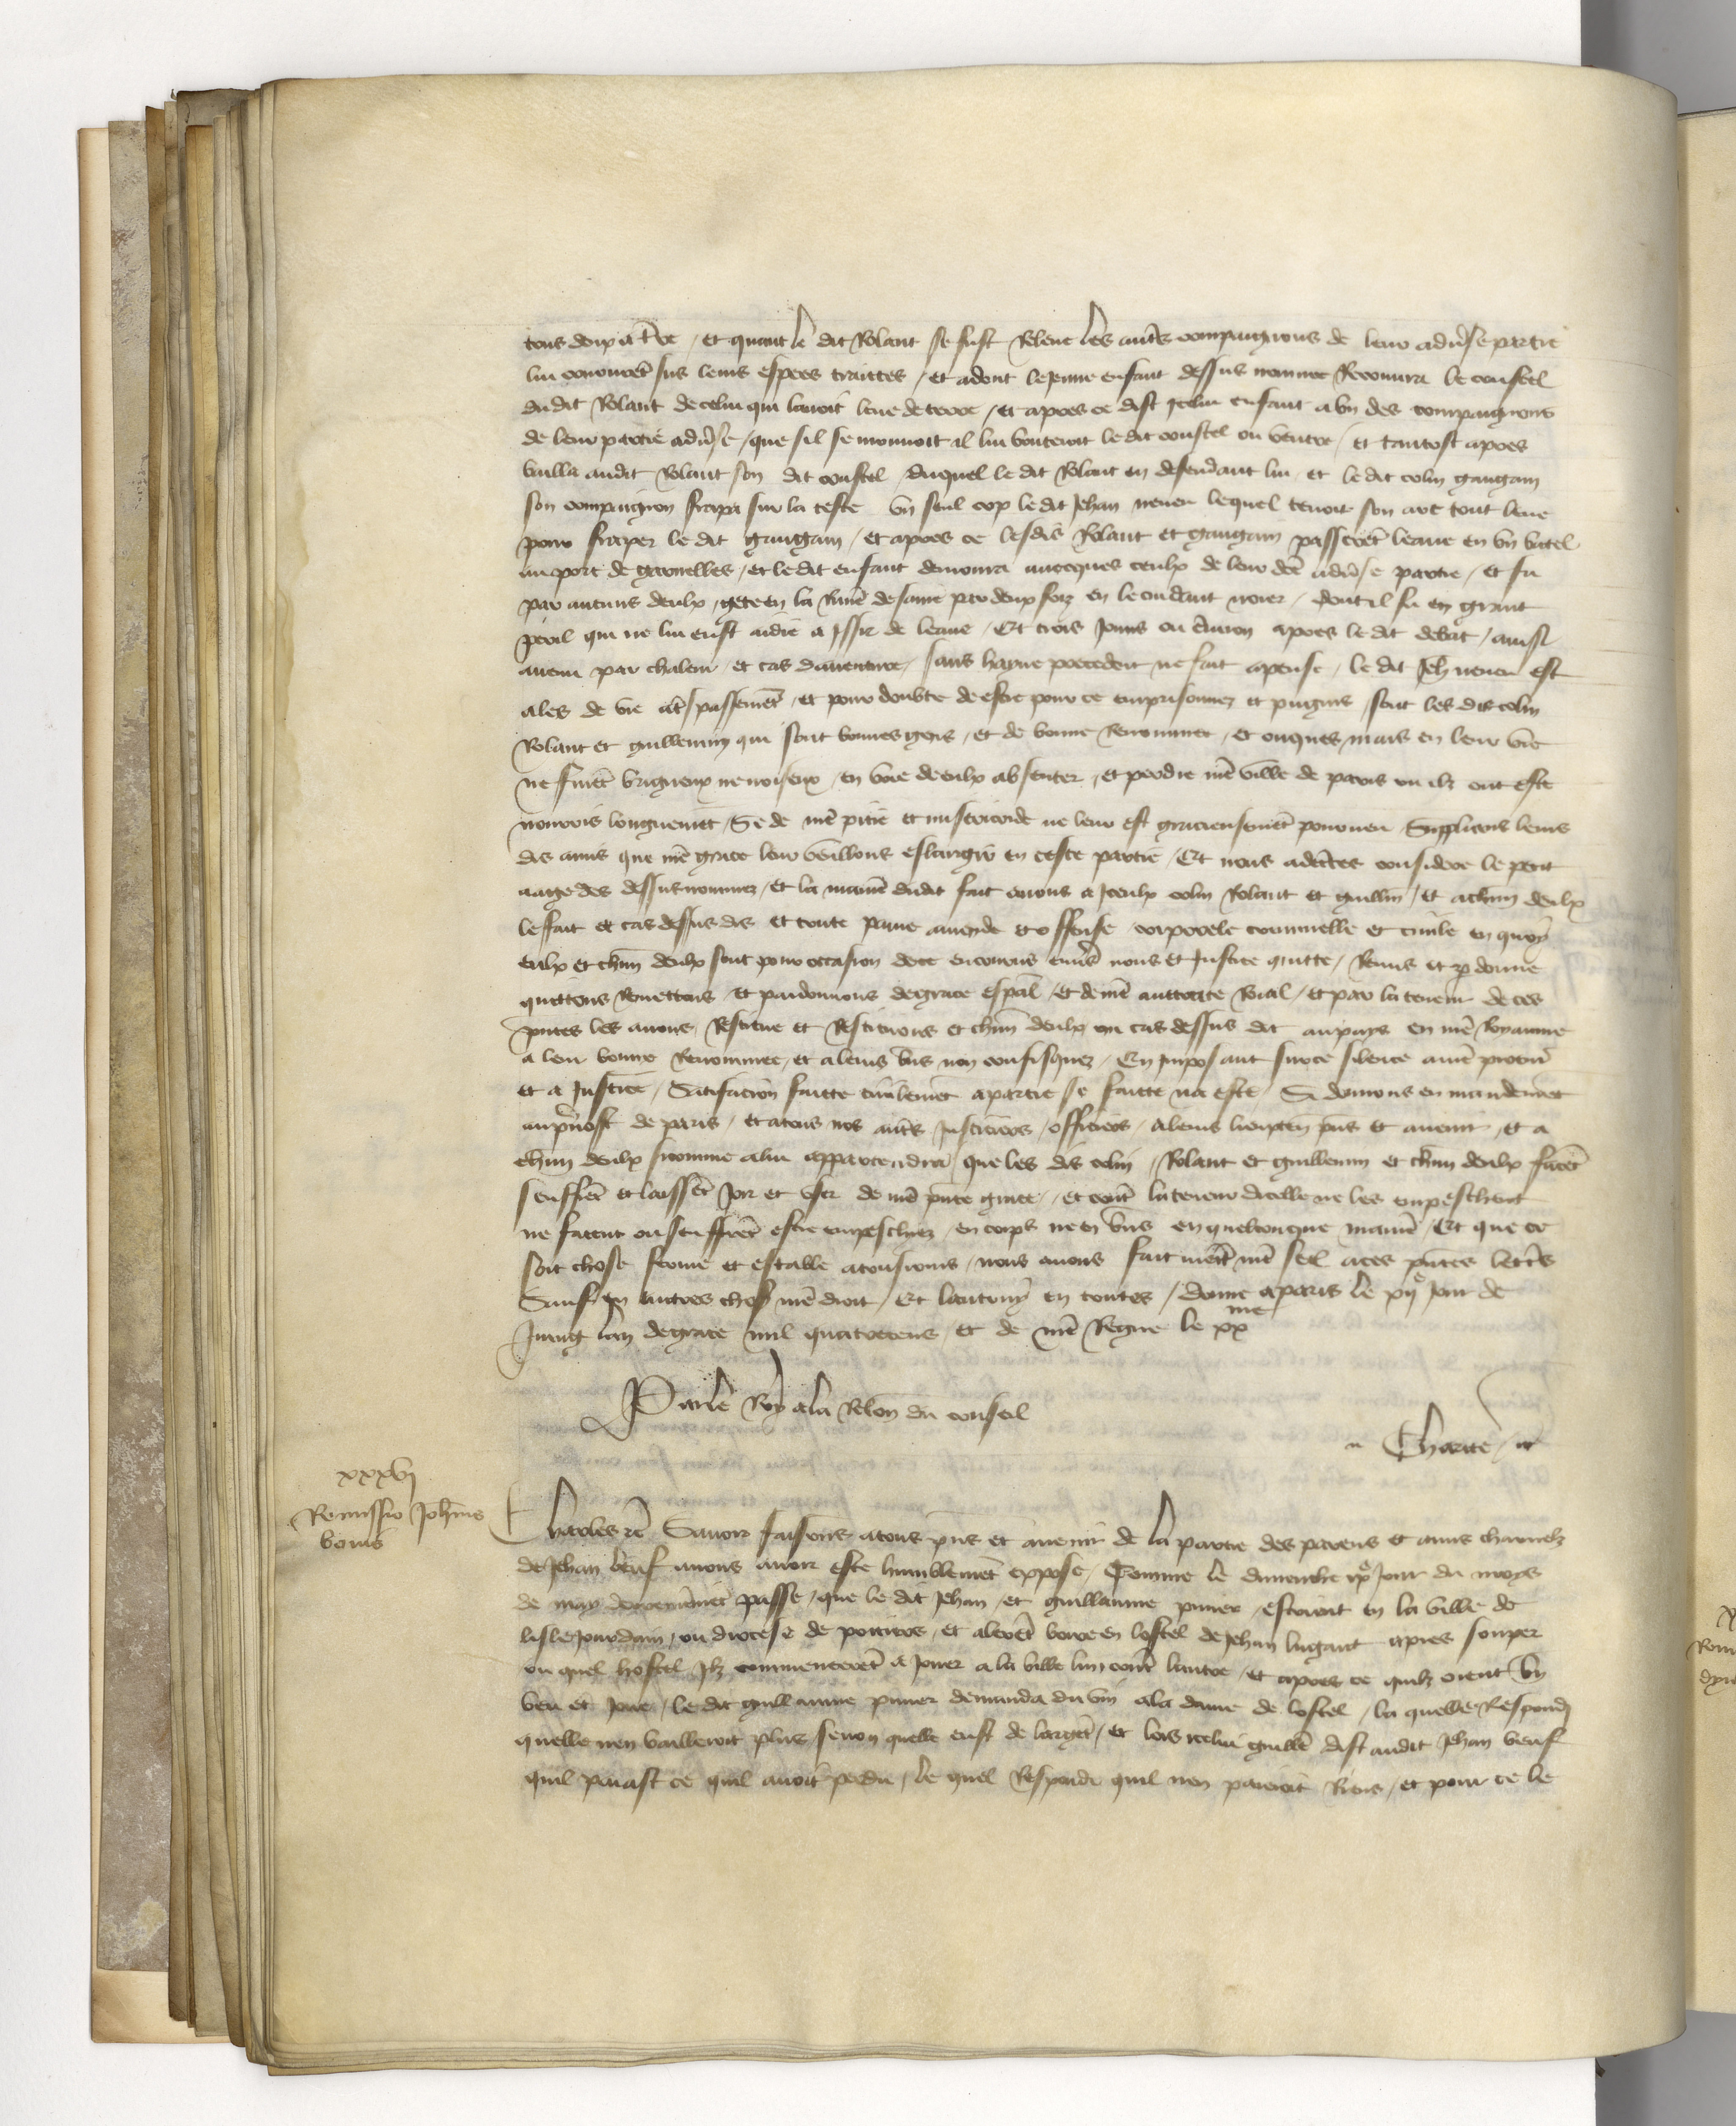 tous deux a tre / et quant le dit Rolant se fust Releue les autres compaignons de leur aduse partie
lui coururet sus leurs espees traittes / et adont le Jeune enfant dessus nomme Recouura le coustel
dudit Rolant de celui qui lauoit leue de terre / et apres ce dist Icelui enfant a vn des compaignons
de leur partie aduse / que sil se mouuoit il lui bouteroit le dit coustel ou ventre / et tantost apres
bailla audit Rolant son dit coustel duquel le dit Rolant en defendant lui et le dit colin gaugain
son compaignon frapa sur la teste vn seul cop le dit Jehan neuer lequel tenoit son arc tout leue
pour fraper le dit gaugain / et apres ce lesdis Rolant et gaugain passeret leaue en vn batel
au port de garnelles / et le dit enfant demoura auecques ceulx de leur dce aduse partie / et fu
par aucuns deulx gete en la Riuie de saine par deux foiz en le cuidant noier / dont il fu en grant
peril qui ne lui eust aidie a Issir de leaue / Et trois Jours ou enuiron apres le dit debat / ainsi
auenu par chaleur et cas dauenture / sans hayne precedent ne fait apense / le dit Jeh neuer est
ales de vie a tspassemet / et pour doubte de estre pour ce emprisonnez et pugnis / sont les dis colin
Rolant et guillemin qui sont bonnes gens / et de bonne Renommee / et onques mais en leur vie
ne furet brigueux ne noiseux / en voie de eulx absenter / et perdre nre ville de paris ou ilz ont este
nourris longuemet / Se de nre pitie et misericorde ne leur est gracieusemet pourueu / Supplians leurs
dis amis que nre grace leur veillons eslargir en ceste partie / Et nous adectes considere le petit
aage des dessusnommez / et la manie dudit fait auons a Iceulx colin Rolant et guillmin / et a chun deulx
le fait et cas dessus dis et toute paine amende et offense corporele criminelle et ciuile en quoy
eulx et chun deulx sont pour occasion de ce encourus enus nous et Justice quitte / Remis et pdonne
quettons Remettons et pardonnons de grace espal / et de nre auctorite Roial / et par la teneur de ces
pntes les auons Restitue et Restituons et chun deulx ou cas dessus dit au pays en nre Royaume
a leur bonne Renommee / et a leurs bns non confisquez / En Imposant sur ce silence a nre procur
et a Justice / Satifacion faitte ciuilemet a partie se faitte na este / Si donnons en mandemet
au pruost de paris / et a tous nos autres Justiciers / officiers / a leurs lieuxten pns et auenir / et a
chun deulx si comme a lui appartendra que les dis colin / Rolant et guillemin et chun deulx facet
seuffret et laisset Joir et vser de nre pnte grace / et contre la teneur dicelle ne les empeschent
ne facent ou seuffret estre empeschiez en corps ne en bns en quelconque manie / Et que ce
soit chose ferme et estable a tousiours / nous auons fait mett nre seel a ces pntes lettres
Sauf en autres choses nre droit / Et lautruy en toutes / donne a paris le xij e Jour de
Juing lan de grace mil quatrecens / et de nre Regne le xx me
Par le Roy a la Relon du conseil
Charite / n
xxxvj
Remissio Johnis
bouis
Charles etc Sauoir faisons a tous pns et auenir de la partie des parens et amis charnelz
de Jehan beuf a nous auoir este humblemet expose / Comme le dimenche ix e Jour du moys
de may derrenieremet passe / que le dit Jehan et guillaume pinier / estoient en la ville de
lisle Jourdain / ou diocese de poitiers / et aleret boire en lostel de Jehan lugant apres souper
ou quel hostel Ilz commenceret a Jouer a la bille lun contre lautre / et apres ce quilz orent vn
beu et Joue / le dit guillaume pinier demanda du vin a la dame de lostel / la quelle Respondj
quelle nen bailleroit plus senon quelle eust de largent / et lors icelui guillme dist audit Jehan beuf
quil paiast ce quil auoit perdu / le quel Respondi quil nen paieroit Riens / et pour ce le